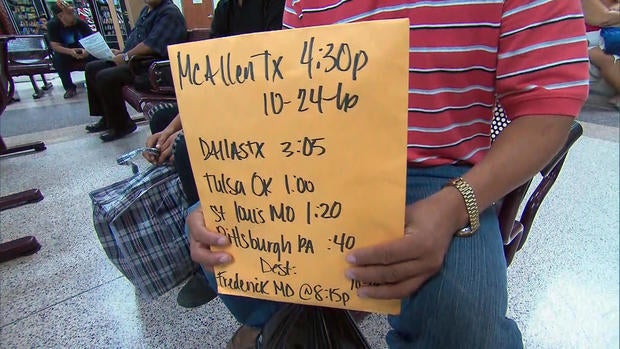 McAllen TX 4:30p
10-24-6p
DAllAsTX 3:05
Tulsa OK 1:00
St louis MO 1:20
Pittsburgh PA :40
Dest:
Frederick MD @ 8:15p